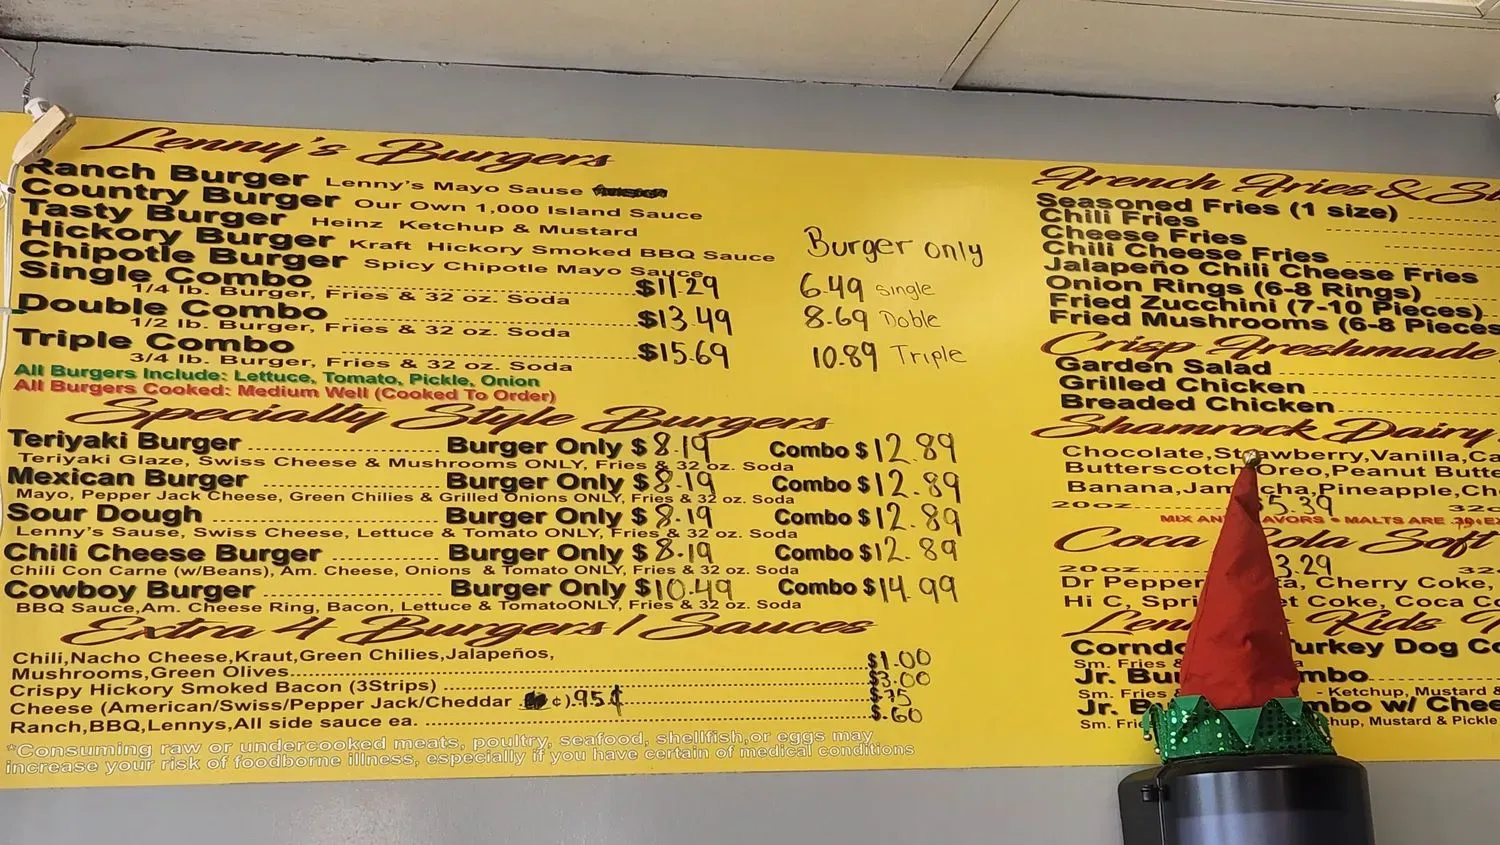 Lenny's Burgers
Ranch Burger Lenny's Mayo Sause
Country Burger Our Own 1,000 Island Sauce
Tasty Burger Heinz Ketchup & Mustard
Hickory Burger Kraft Hickory Smoked BBQ Sauce
Chipotle Burger Spicy Chipotle Mayo Sauce
Single Combo $11.29
1/4 lb. Burger, Fries & 32 oz. Soda
Double Combo $13.49
1/2 lb. Burger, Fries & 32 oz. Soda
Triple Combo $15.69
3/4 lb. Burger, Fries & 32 oz. Soda
Burger only
6.49 single
8.69 Doble
10.89 Triple
All Burgers Include: Lettuce, Tomato, Pickle, Onion
All Burgers Cooked: Medium Well (Cooked To Order)
Specialty Style Burgers
Teriyaki Burger Burger Only $8.19 Combo $12.89
Teriyaki Glaze, Swiss Cheese & Mushrooms ONLY, Fries & 32 oz. Soda
Mexican Burger Burger Only $8.19 Combo $12.89
Mayo, Pepper Jack Cheese, Green Chilies & Grilled Onions ONLY, Fries & 32 oz. Soda
Sour Dough Burger Only $8.19 Combo $12.89
Lenny's Sause, Swiss Cheese, Lettuce & Tomato ONLY, Fries & 32 oz. Soda
Chili Cheese Burger Burger Only $8.19 Combo $12.89
Chili Con Carne (w/Beans), Am. Cheese, Onions & Tomato ONLY, Fries & 32 oz. Soda
Cowboy Burger Burger Only $10.49 Combo $14.99
BBQ Sauce,Am. Cheese Ring, Bacon, Lettuce & TomatoONLY, Fries & 32 oz. Soda
Extra 4 Burgers / Sauces
Chili,Nacho Cheese,Kraut,Green Chilies,Jalapeños,
Mushrooms,Green Olives $1.00
Crispy Hickory Smoked Bacon (3Strips) $3.00
Cheese (American/Swiss/Pepper Jack/Cheddar ¢).95¢ $.75
Ranch,BBQ,Lennys,All side sauce ea. $.60
*Consuming raw or undercooked meats, poultry, seafood, shellfish,or eggs may
increase your risk of foodborne illness, especially if you have certain of medical conditions
French Fries &
Seasoned Fries (1 size)
Chili Fries
Cheese Fries
Chili Cheese Fries
Jalapeño Chili Cheese Fries
Onion Rings (6-8 Rings)
Fried Zucchini (7-10 Pieces)
Fried Mushrooms (6-8 Pieces
Crisp Freshmade
Garden Salad
Grilled Chicken
Breaded Chicken
Shamrock Dairy
Chocolate,Strawberry,Vanilla,
Butterscotch,Oreo,Peanut
Banana, Pineapple,
20oz 5.39
MIX MALTS ARE
Coca Cola Soft
20oz 3.29
Dr Pepper Cherry Coke,
Hi C, Coke, Coca
Kids
Turkey Dog
Sm. Fries
Jr.
Sm. Fries - Ketchup, Mustard &
Jr. w/
Sm. Mustard & Pickle